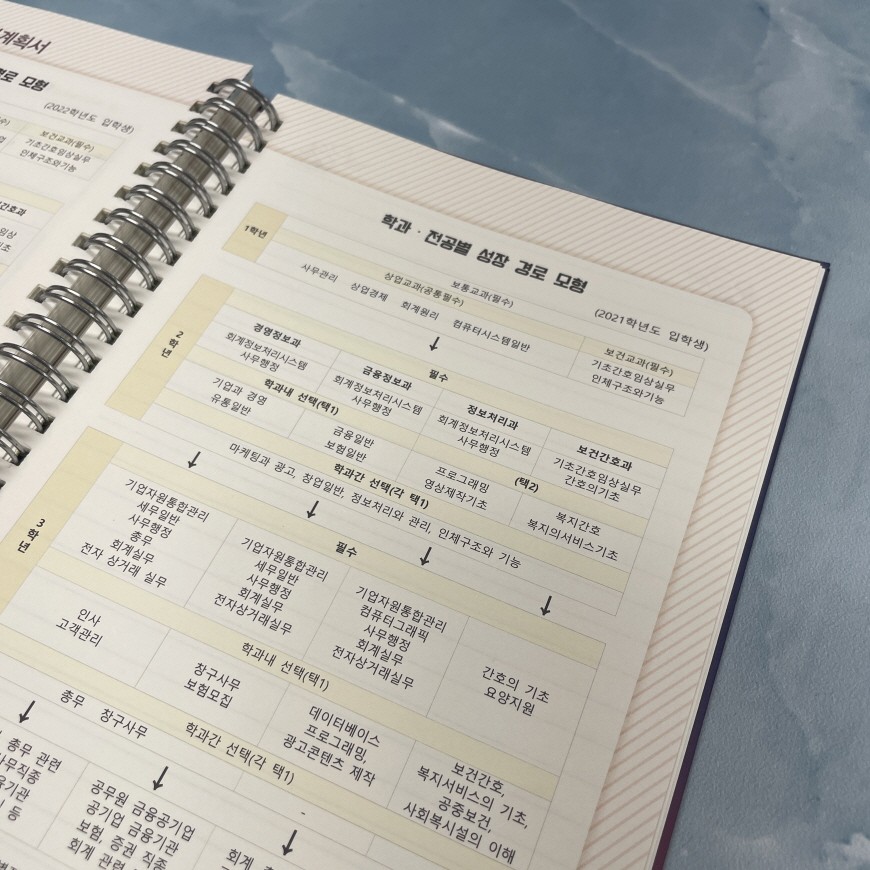 계획서
경로 모형
(2022학년도 입학생)
보건교과(필수)
기초간호임상실무
인체구조와기능
학과 · 전공별 성장 경로 모형
(2021학년도 입학생)
1학년
보통교과(필수)
상업교과(공통필수)
보건교과(필수)
사무관리 상업경제 회계원리 컴퓨터시스템일반
기초간호임상실무
인체구조와기능
↓
2학년
필수
경영정보과
금융정보과
정보처리과
보건간호과
회계정보처리시스템
사무행정
회계정보처리시스템
사무행정
회계정보처리시스템
사무행정
기초간호임상실무
간호의기초
학과내 선택(택1)
(택2)
기업과 경영
유통일반
금융일반
보험일반
프로그래밍
영상제작기초
복지간호
복지의서비스기초
학과간 선택(각 택1)
마케팅과 광고, 창업일반, 정보처리와 관리, 인체구조와 기능
↓ ↓ ↓ ↓
3학년
필수
기업자원통합관리
세무일반
사무행정
총무
회계실무
전자 상거래 실무
기업자원통합관리
세무일반
사무행정
회계실무
전자상거래실무
기업자원통합관리
컴퓨터그래픽
사무행정
회계실무
전자상거래실무
간호의 기초
요양지원
학과내 선택(택1)
인사
고객관리
창구사무
보험모집
데이터베이스
프로그래밍,
광고콘텐츠 제작
보건간호,
복지서비스의 기초,
공중보건,
사회복시설의 이해
학과간 선택(각 택1)
총무 창구사무
-
↓ ↓ ↓
총무 관련
사무직종
등
공무원 금융공기업
공기업 금융기관
보험, 증권 직종
회계 관련
회계